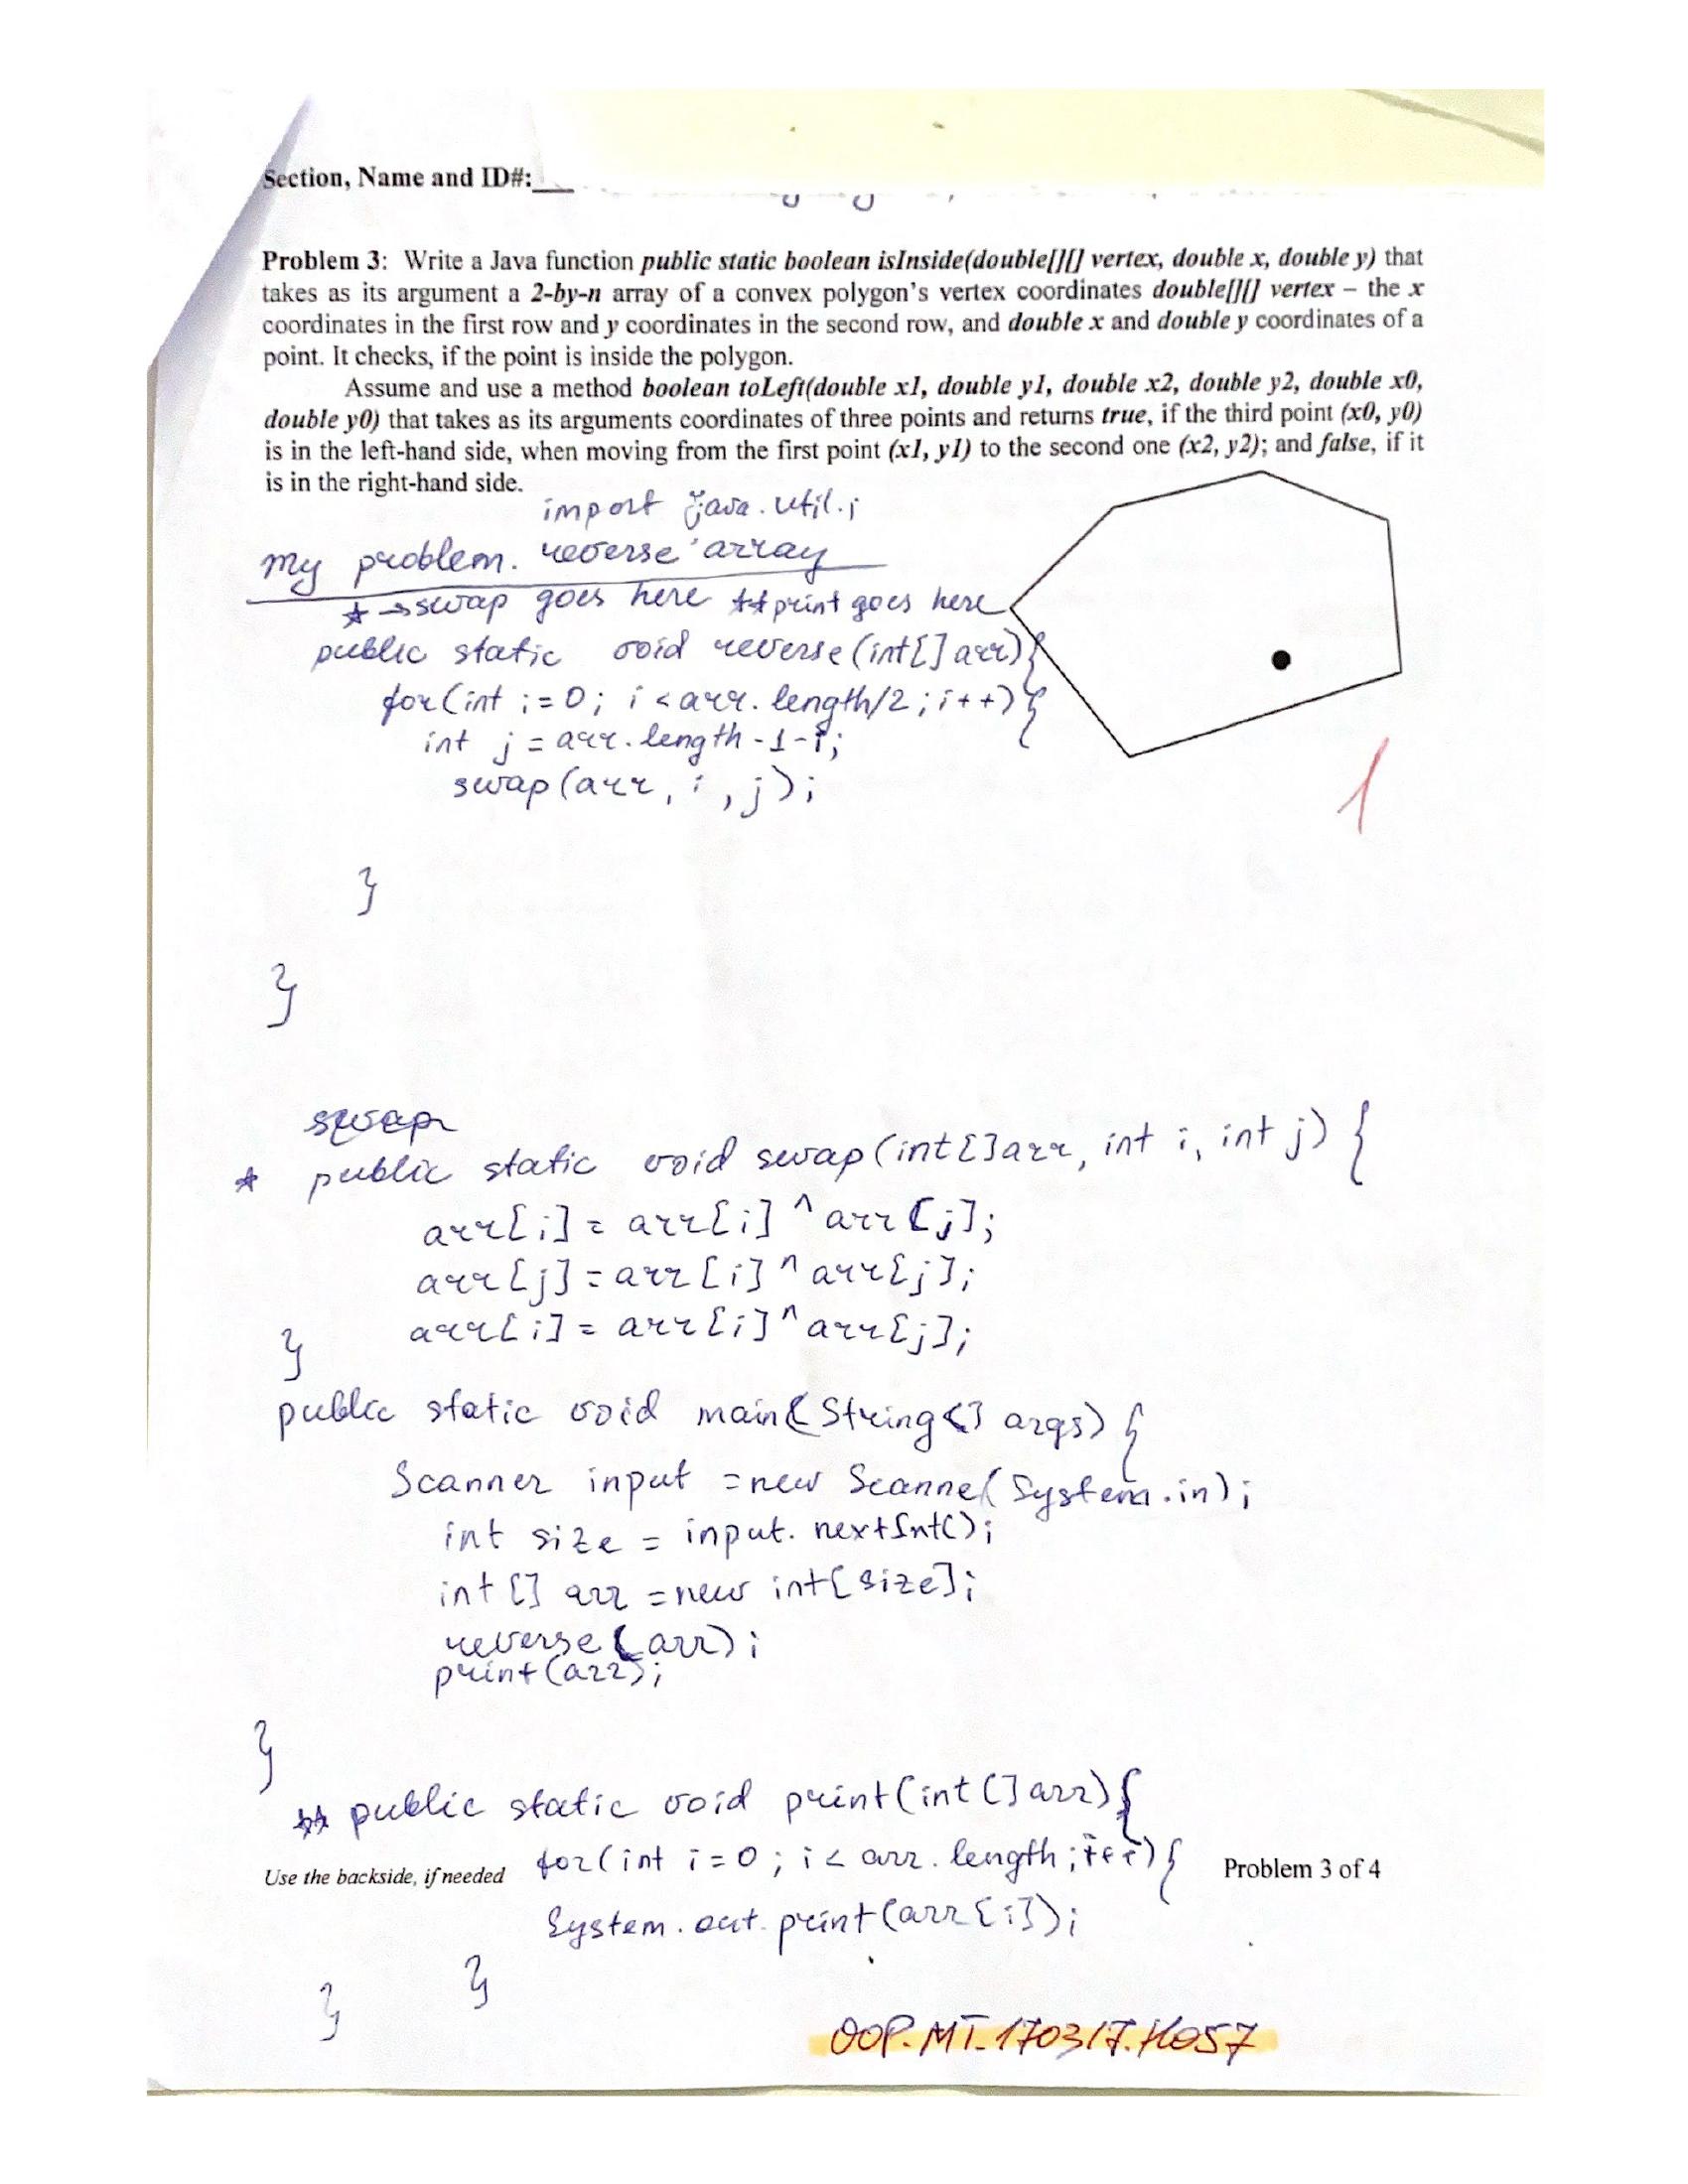 Section, Name and ID#:
Problem 3: Write a Java function public static boolean isInside(double[][] vertex, double x, double y) that
takes as its argument a 2-by-n array of a convex polygon's vertex coordinates double[][] vertex – the x
coordinates in the first row and y coordinates in the second row, and double x and double y coordinates of a
point. It checks, if the point is inside the polygon.
Assume and use a method boolean toLeft(double x1, double y1, double x2, double y2, double x0,
double y0) that takes as its arguments coordinates of three points and returns true, if the third point (x0, y0)
is in the left-hand side, when moving from the first point (x1, y1) to the second one (x2, y2); and false, if it
is in the right-hand side.
import java.util.;
my problem. reverse array
* → swap goes here ** print goes here
public static void reverse(int[] arr){
for(int i=0; i<arr.length/2; i++){
int j = arr.length-1-i;
swap(arr, i, j);
1
}
}
swap
* public static void swap(int[] arr, int i, int j) {
arr[i] = arr[i] ^ arr[j];
arr[j] = arr[i] ^ arr[j];
arr[i] = arr[i] ^ arr[j];
}
public static void main(String[] args) {
Scanner input = new Scanner(System.in);
int size = input.nextInt();
int [] arr = new int[size];
reverse(arr);
print(arr);
}
** public static void print(int [] arr){
for(int i=0; i< arr.length; i++){
Use the backside, if needed
Problem 3 of 4
System.out.print(arr[i]);
}
}
OOP.MT.170317.H057